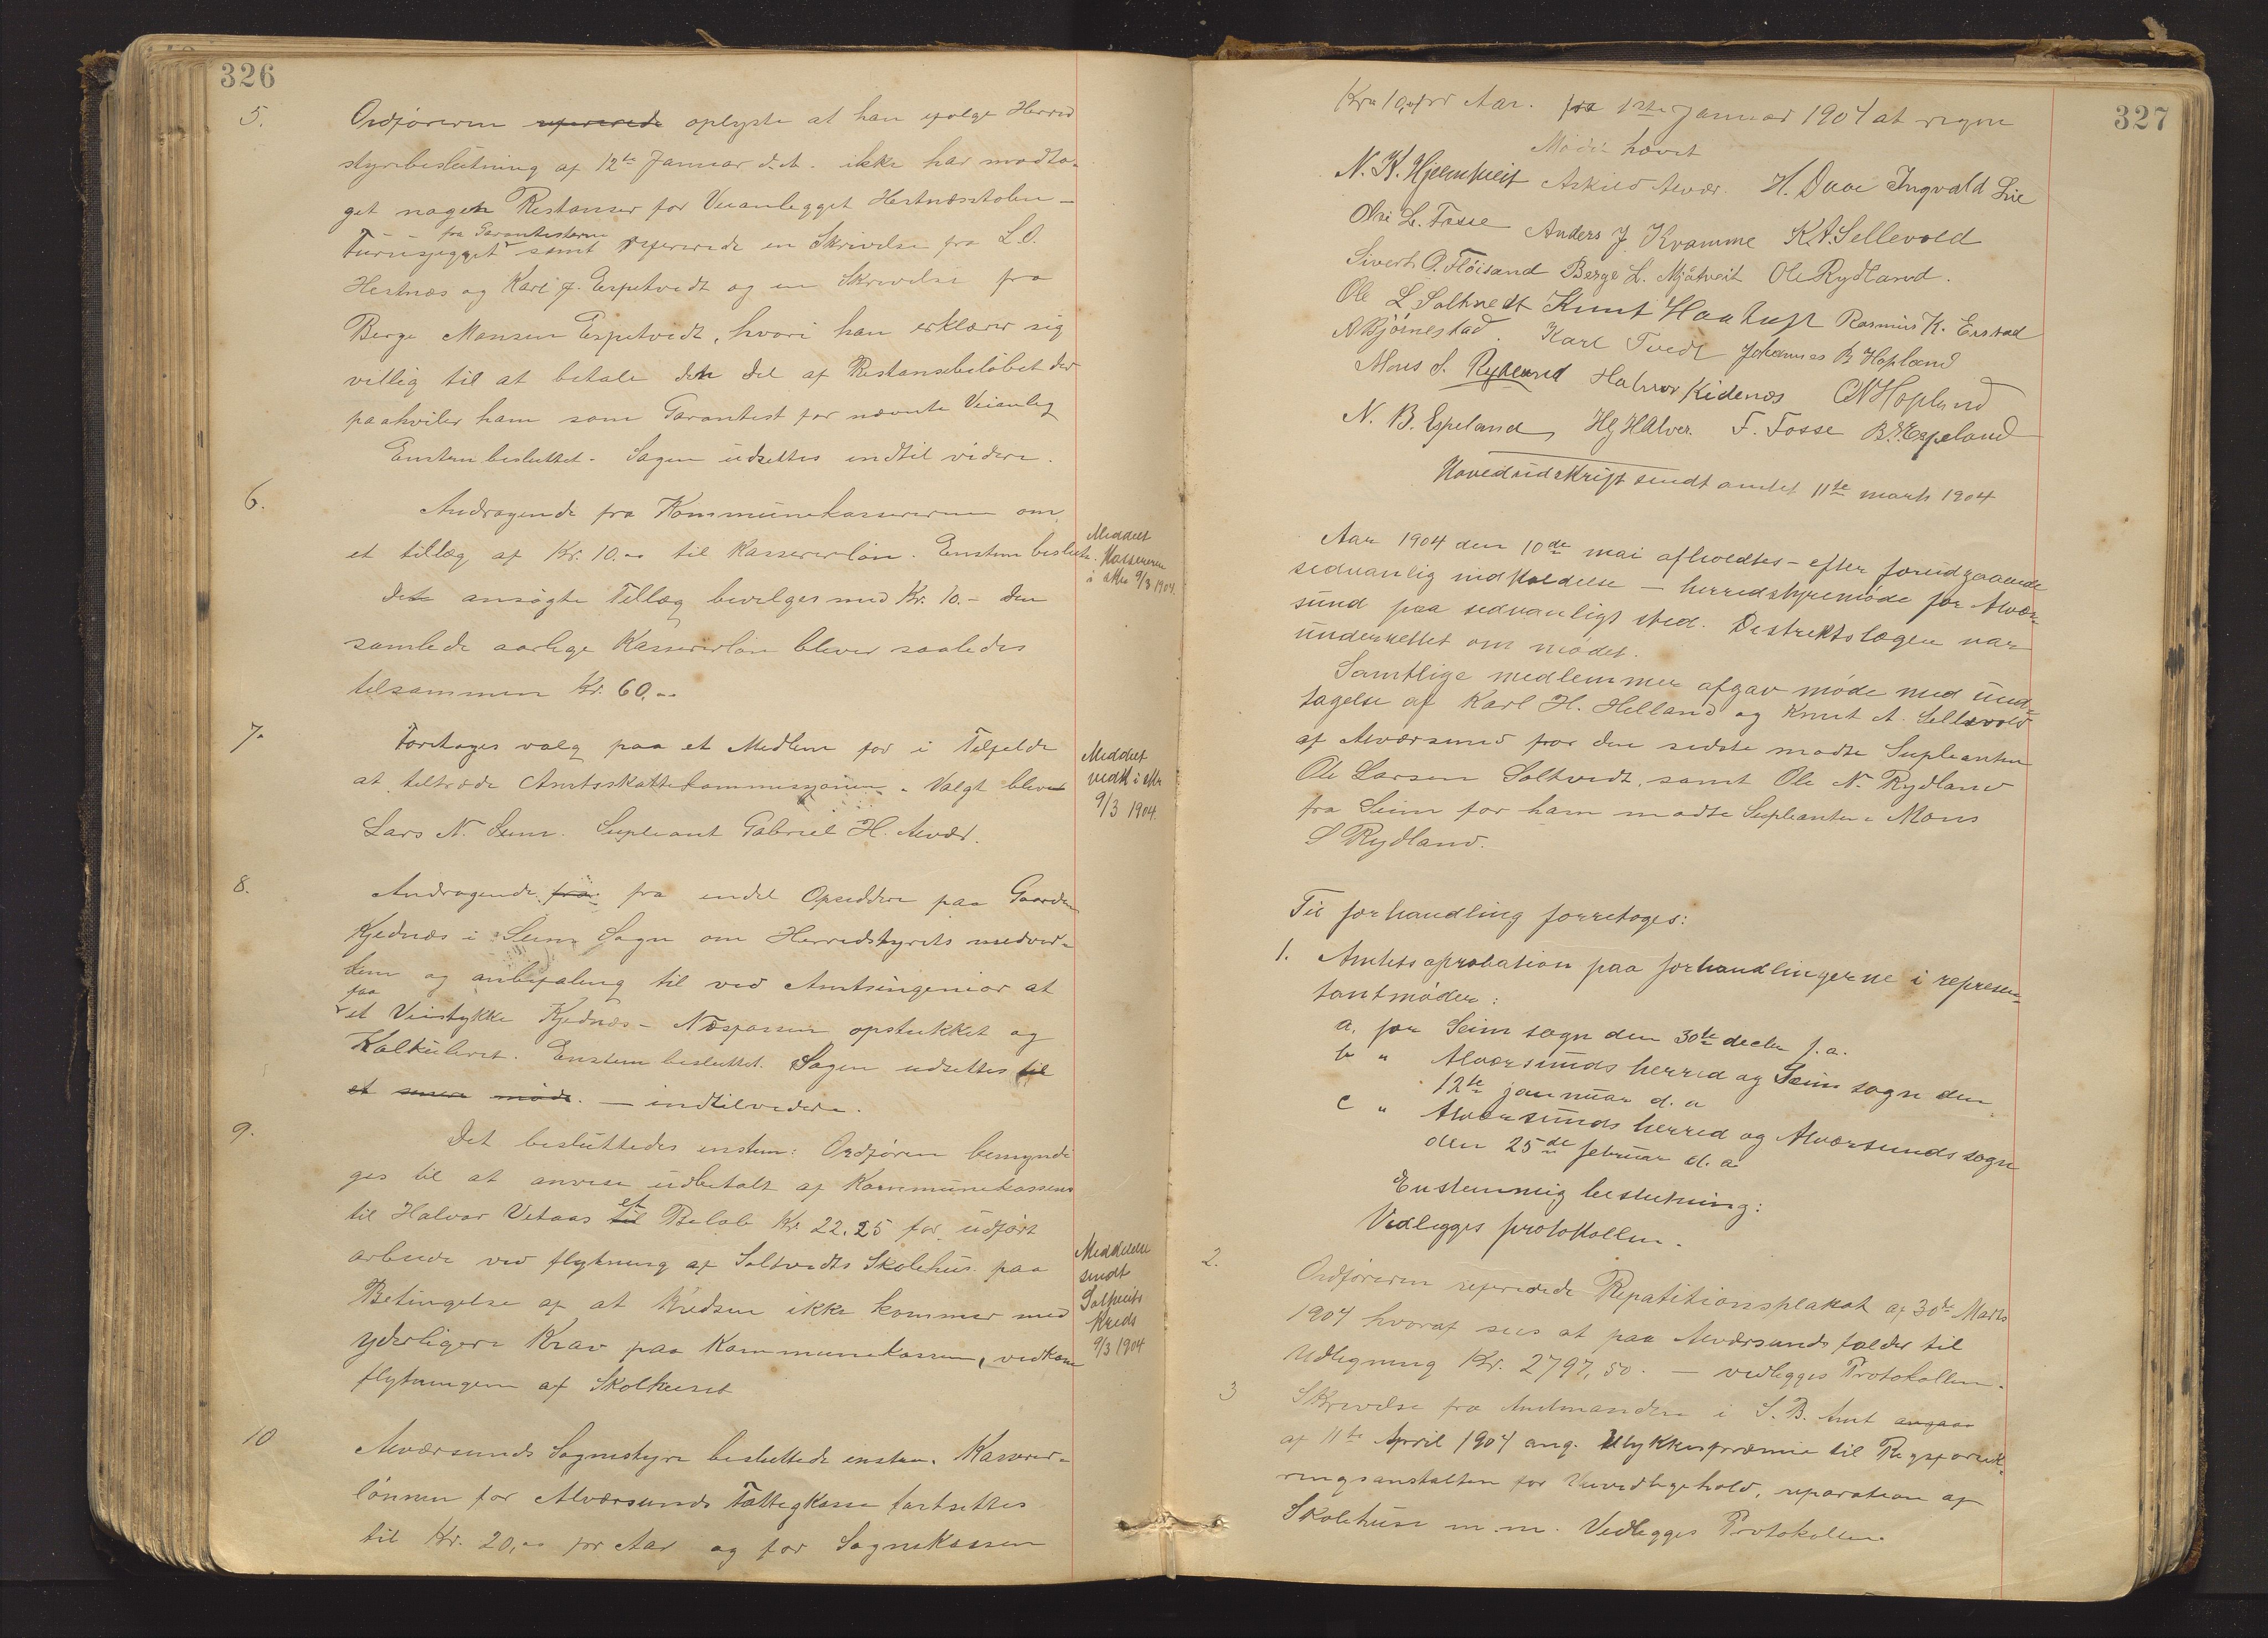 326
5.
Ordføreren refererede oplyste at han ifølge Herred
styrbeslutning af 12te Januar d.A. ikke har modta-
get nogen Restanser for Veianlegget Hestnæsstølen -
fra Garantisterne
Furuskjegget samt refererede en Skrivelse fra L.O.
Hestnæs og Karl J. Espetvedt og en Skrivelse fra
Berge Monsen Espetvedt, hvori han erklærer sig
villig til at betale den Del af Restansebeløbet der
paahviler ham som Garantist for nævnte Veianleg
Enstem besluttet. Sagen udsettes indtil videre.
6.
Andragende fra Kommunekassereren om
et tillæg af Kr. 10.00 til Kassererløn. Enstem beslutt.
Dete ansøgte Tillæg bevilges med Kr. 10.- Den
samlede aarlige Kassererløn bliver saaledes
tilsammen Kr. 60.00
Meddelt
Kassereren
i Skr 9/3 1904.
7.
Foretoges valg paa et Medlem for i Tilfelde
at tiltræde Amtsskattekommissjonen. Valgt blev
Lars N. Seim. Supleant Gabriel H. Alvær.
Meddelt
vedk i Skr
9/3 1904.
8.
Andragende fra fra endel Opsiddere paa Gaarden
Kjednæs i Seim Sogn om Herredstyrets medvir-
ken og anbefaling til ved Amtsingeniør at
faa
et Veistykke Kjednæs - Næspassen opstukket og
Kalkuleret. Enstem besluttet. Sagen udsettes til
et møde. - indtilvidere.
9.
Det besluttedes enstem: Ordføren bemyndi
ges til at anvise udbetalt af Kommunekassens
til Halvor Vetaas til et Beløb Kr. 22.25 for udført
arbeide ved flytning af Soltvedts Skolehus paa
Betingelse af at Kredsen ikke kommer med
yderligere Krav paa Kommunekassen, vedkom
flytningen af Skolhuset
Meddelelse
sendt
Soltveits
Kreds
9/3 1904
10
Alværsunds Sognestyre besluttede enstem. Kasserer-
lønnen for Alværsunds Fattigkasse fortsettes
til Kr. 20,00 pr Aar og for Sognekassen
327
Kr. 10,00 pr Aar. fra 1ste Januar 1904 at regne
Mødet hævet
N. K. Hjelmtveit Askild Alvær. H. Daae Ingvald Lie
Olai L. Fosse Anders J. Kvamme K A. Sellevold
Sivert O. Fløisand Berge L. Mjåtveit Ole Rydland.
Ole L Soltvedt Knut Haatuft Rasmus K. Erstad
A Bjørnestad. Karl Tvedt Johannes B Hopland
Mons S. Rydland Halvor Kidenæs O N Hopland
N. B. Espeland Hg H Alver. F. Fosse B. Espeland
Hovedudskrift sendt amtet 11te marts 1904
Aar 1904 den 10de mai afholdtes - efter foreudgaaende
sedvanlig indkaldelse - herredstyremøde for Alvær-
sund paa sedvanligt sted. Distriktslægen var
underrettet om mødet.
Samtlige medlemmer afgav møde med und-
tagelse af Karl H. Helland og Knut A. Sellevold
af Alværsund for den sidste mødte Supleanten
Ole Larsen Soltvedt, samt Ole N. Rydland
fra Seim for ham mødte Supleanten Mons
S Rydland.
Til forhandling foretoges:
1. Amtets aprobation paa forhandlingerne i represen-
tantmøder:
a. for Seim sogn den 30te decbr f.a.
b " Alværsunds herred og Seim sogn den
12te januar d.a
c " Alværsunds herred og Alværsunds sogn
den 25de februar d.a
Enstemmig beslutning:
Vedlegges protokollen.
2.
Ordføreren refererede Repatitionsplakat af 30te Marts
1904 hvoraf sees at paa Alværsund falder til
Udligning Kr. 2797,50. - vedlegges Protokollen.
3
Skrivelse fra Amtmanden i S. B. Amt angaa
af 11te April 1904 ang. Ulykkespræmie til Rigsforsik-
ringsanstalten for Veivedligehold, reparation af
Skolehuse m.m. Vedlegges Protokollen.